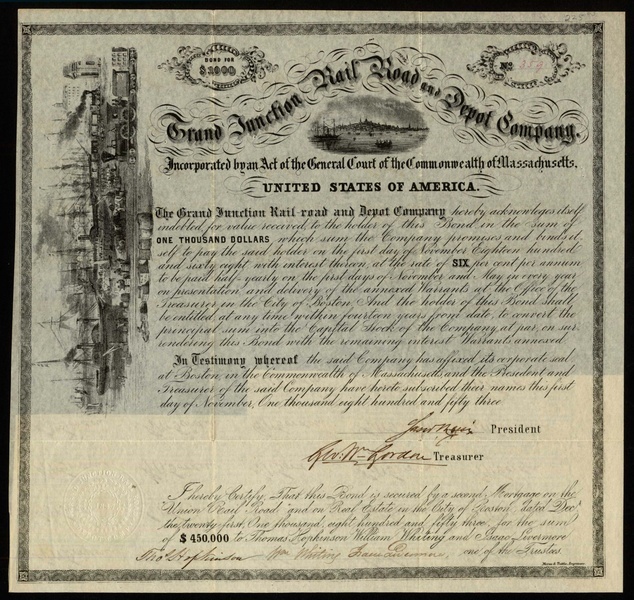 BOND FOR
$1000
No. 359
Grand Junction Rail Road and Depot Company.
Incorporated by an Act of the General Court of the Commonwealth of Massachusetts.
UNITED STATES OF AMERICA.
The Grand Junction Rail-road and Depot Company hereby acknowleges itself
indebted for value received, to the holder of this Bond in the sum of
ONE THOUSAND DOLLARS which sum the Company promises and binds it
self to pay the said holder on the first day of November Eighteen hundred
and sixty eight with interest thereon, at the rate of SIX per cent per annum
to be paid half-yearly on the first days of November and May in every year
on presentation and delivery of the annexed Warrants at the Office of the
Treasurer in the City of Boston And the holder of this Bond shall
be entitled, at any time within fourteen years from date, to convert the
principal sum into the Capital Stock of the Company, at par, on sur
rendering this Bond with the remaining interest Warrants annexed
In Testimony whereof the said Company has affixed its corporate seal
at Boston, in the Commonwealth of Massachusetts, and the President and
Treasurer of the said Company have hereto subscribed their names this first
day of November, One thousand eight hundred and fifty three
President
Geo. Wm. Gordon Treasurer
I hereby Certify, That this Bond is secured by a second Mortgage on the
Union Rail Road and on Real Estate in the City of Boston dated Dec
the twenty first, One thousand, eight hundred and fifty three for the sum
of $450.000 to Thomas Hopkinson William Whiting and Isaac Livermore
Tho. Hopkinson Wm Whiting Isaac Livermore one of the Trustees